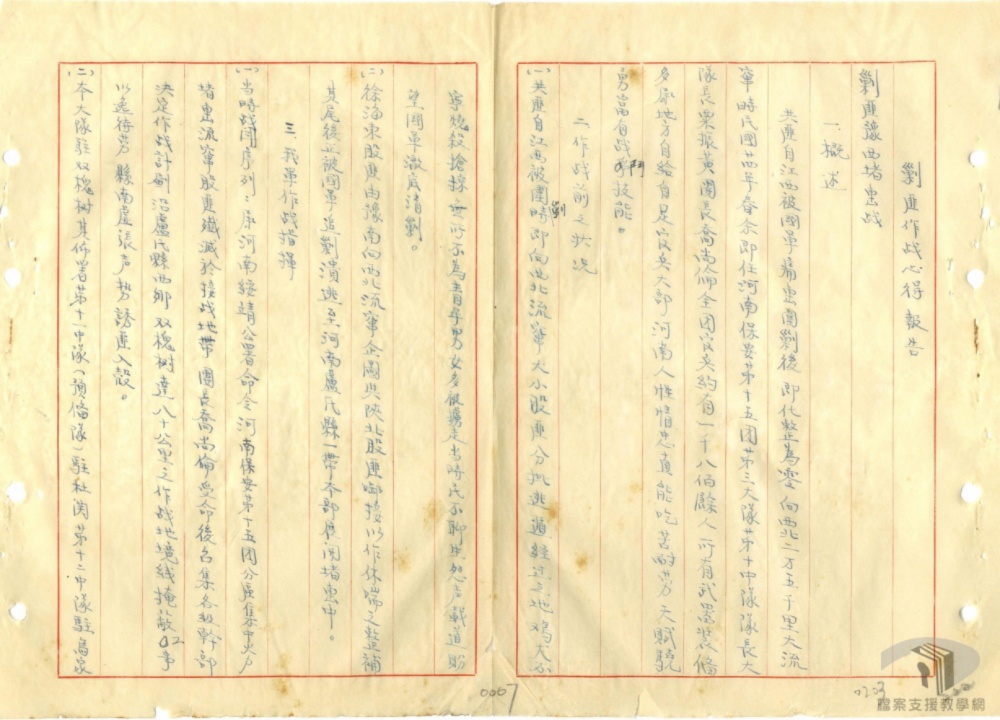 剿匪作战心得报告
剿匪豫西堵击战
一、概述
共匪自江西被國軍痛击圍剿後即化整為零向西北二万五千里大流
窜時民國廿四年春余即任河南保安第十五团第三大隊第十中隊隊長大
隊長栗振黃團長喬尚倫全团官兵約有一千八佰餘人所有武器裝備
多屬地方自給自足官兵大部河南人性情忠直能吃苦耐劳天賦驍
勇富有战鬥技能。
二、作战前之狀况
(一)共匪自江西被圍剿時即向西北流窜大小股匪分批逃遁經过之地鸡犬不
寧燒殺搶掠無所不為青年男女多被擄走当時民不聊生怨声載道盼
望國軍澈底清剿。
(二)徐海東股匪由豫南向西北流窜企圖與陝北股匪啣接以作休喘之整補
其尾後正被國軍追剿潰逃至河南盧氏縣一帶本部展開堵击中。
三、我軍作战指揮
(一)当時战鬥序列:原河南綏靖公署命令河南保安第十五团分區集中火力
堵击流窜股匪殲滅於接战地帶團長喬尚倫受命後召集各級幹部
決定作战計劃沿盧氏縣西鄉双槐树達八十公里之作战地境线掩敵
以逸待劳縣南虛張声势誘匪入殼。
(二)本大隊駐双槐树其佈署第十一中隊(預備隊)駐杜関第十二中隊駐馬家
0007
0203
檔案支援教學網